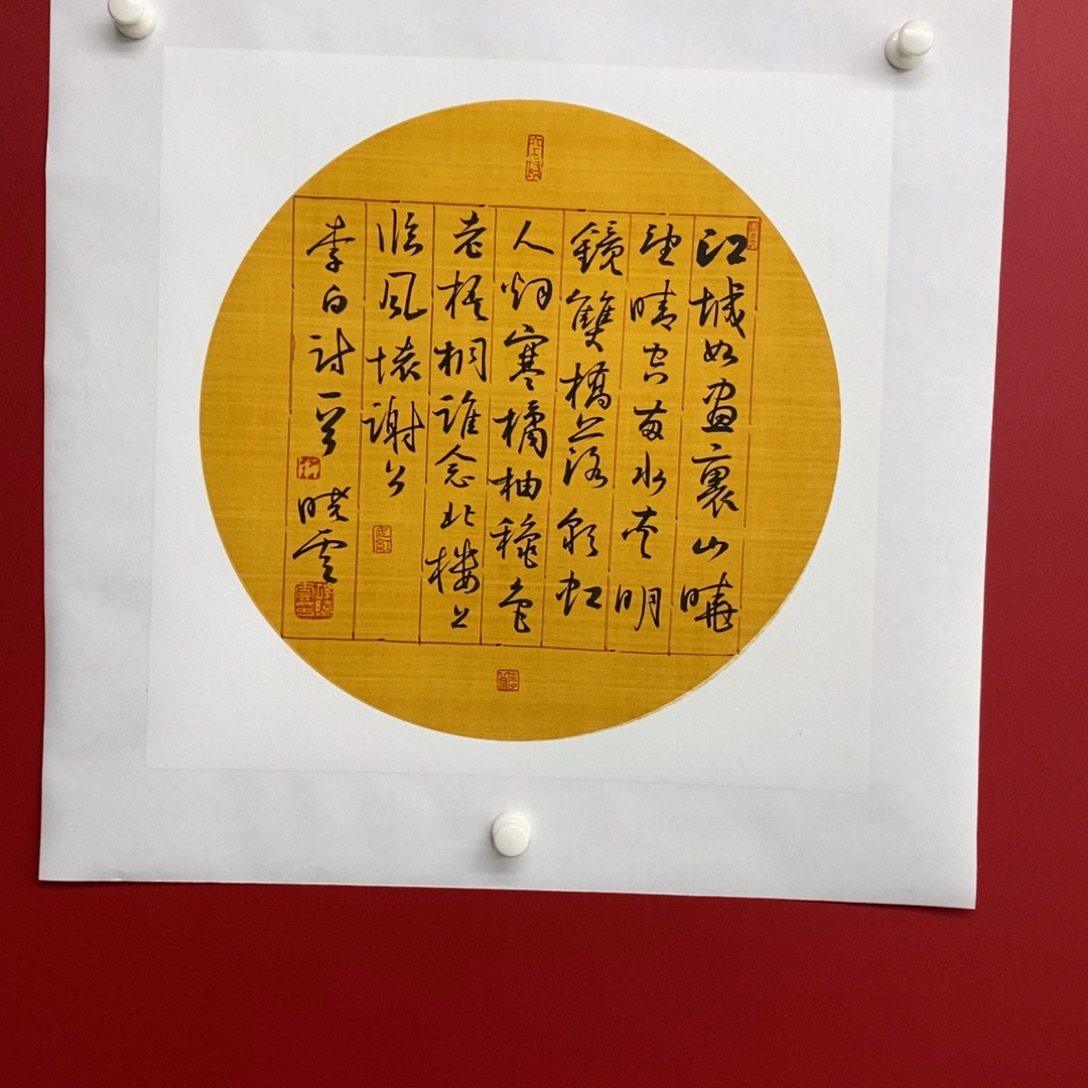 江城如畫裏山曉
望晴空兩水夾明
鏡雙橋落彩虹
人烟寒橘柚穐色
老梧桐誰念北樓上
臨風懷謝公
李白詩一首 曉雲